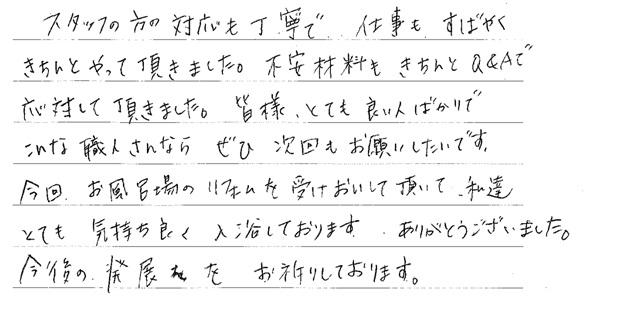 スタッフの方の対応も丁寧で 仕事も すばやく
きちんとやって頂きました。不安材料もきちんとQ&Aで
応対して頂きました。皆様、とても良い人ばかりで
こんな職人さんなら ぜひ 次回もお願いしたいです。
今回、お風呂場のリフォムを受けおいして頂いて、私達
とても 気持ち良く 入浴しております。ありがとうございました。
今後の 発展を お祈りしております。